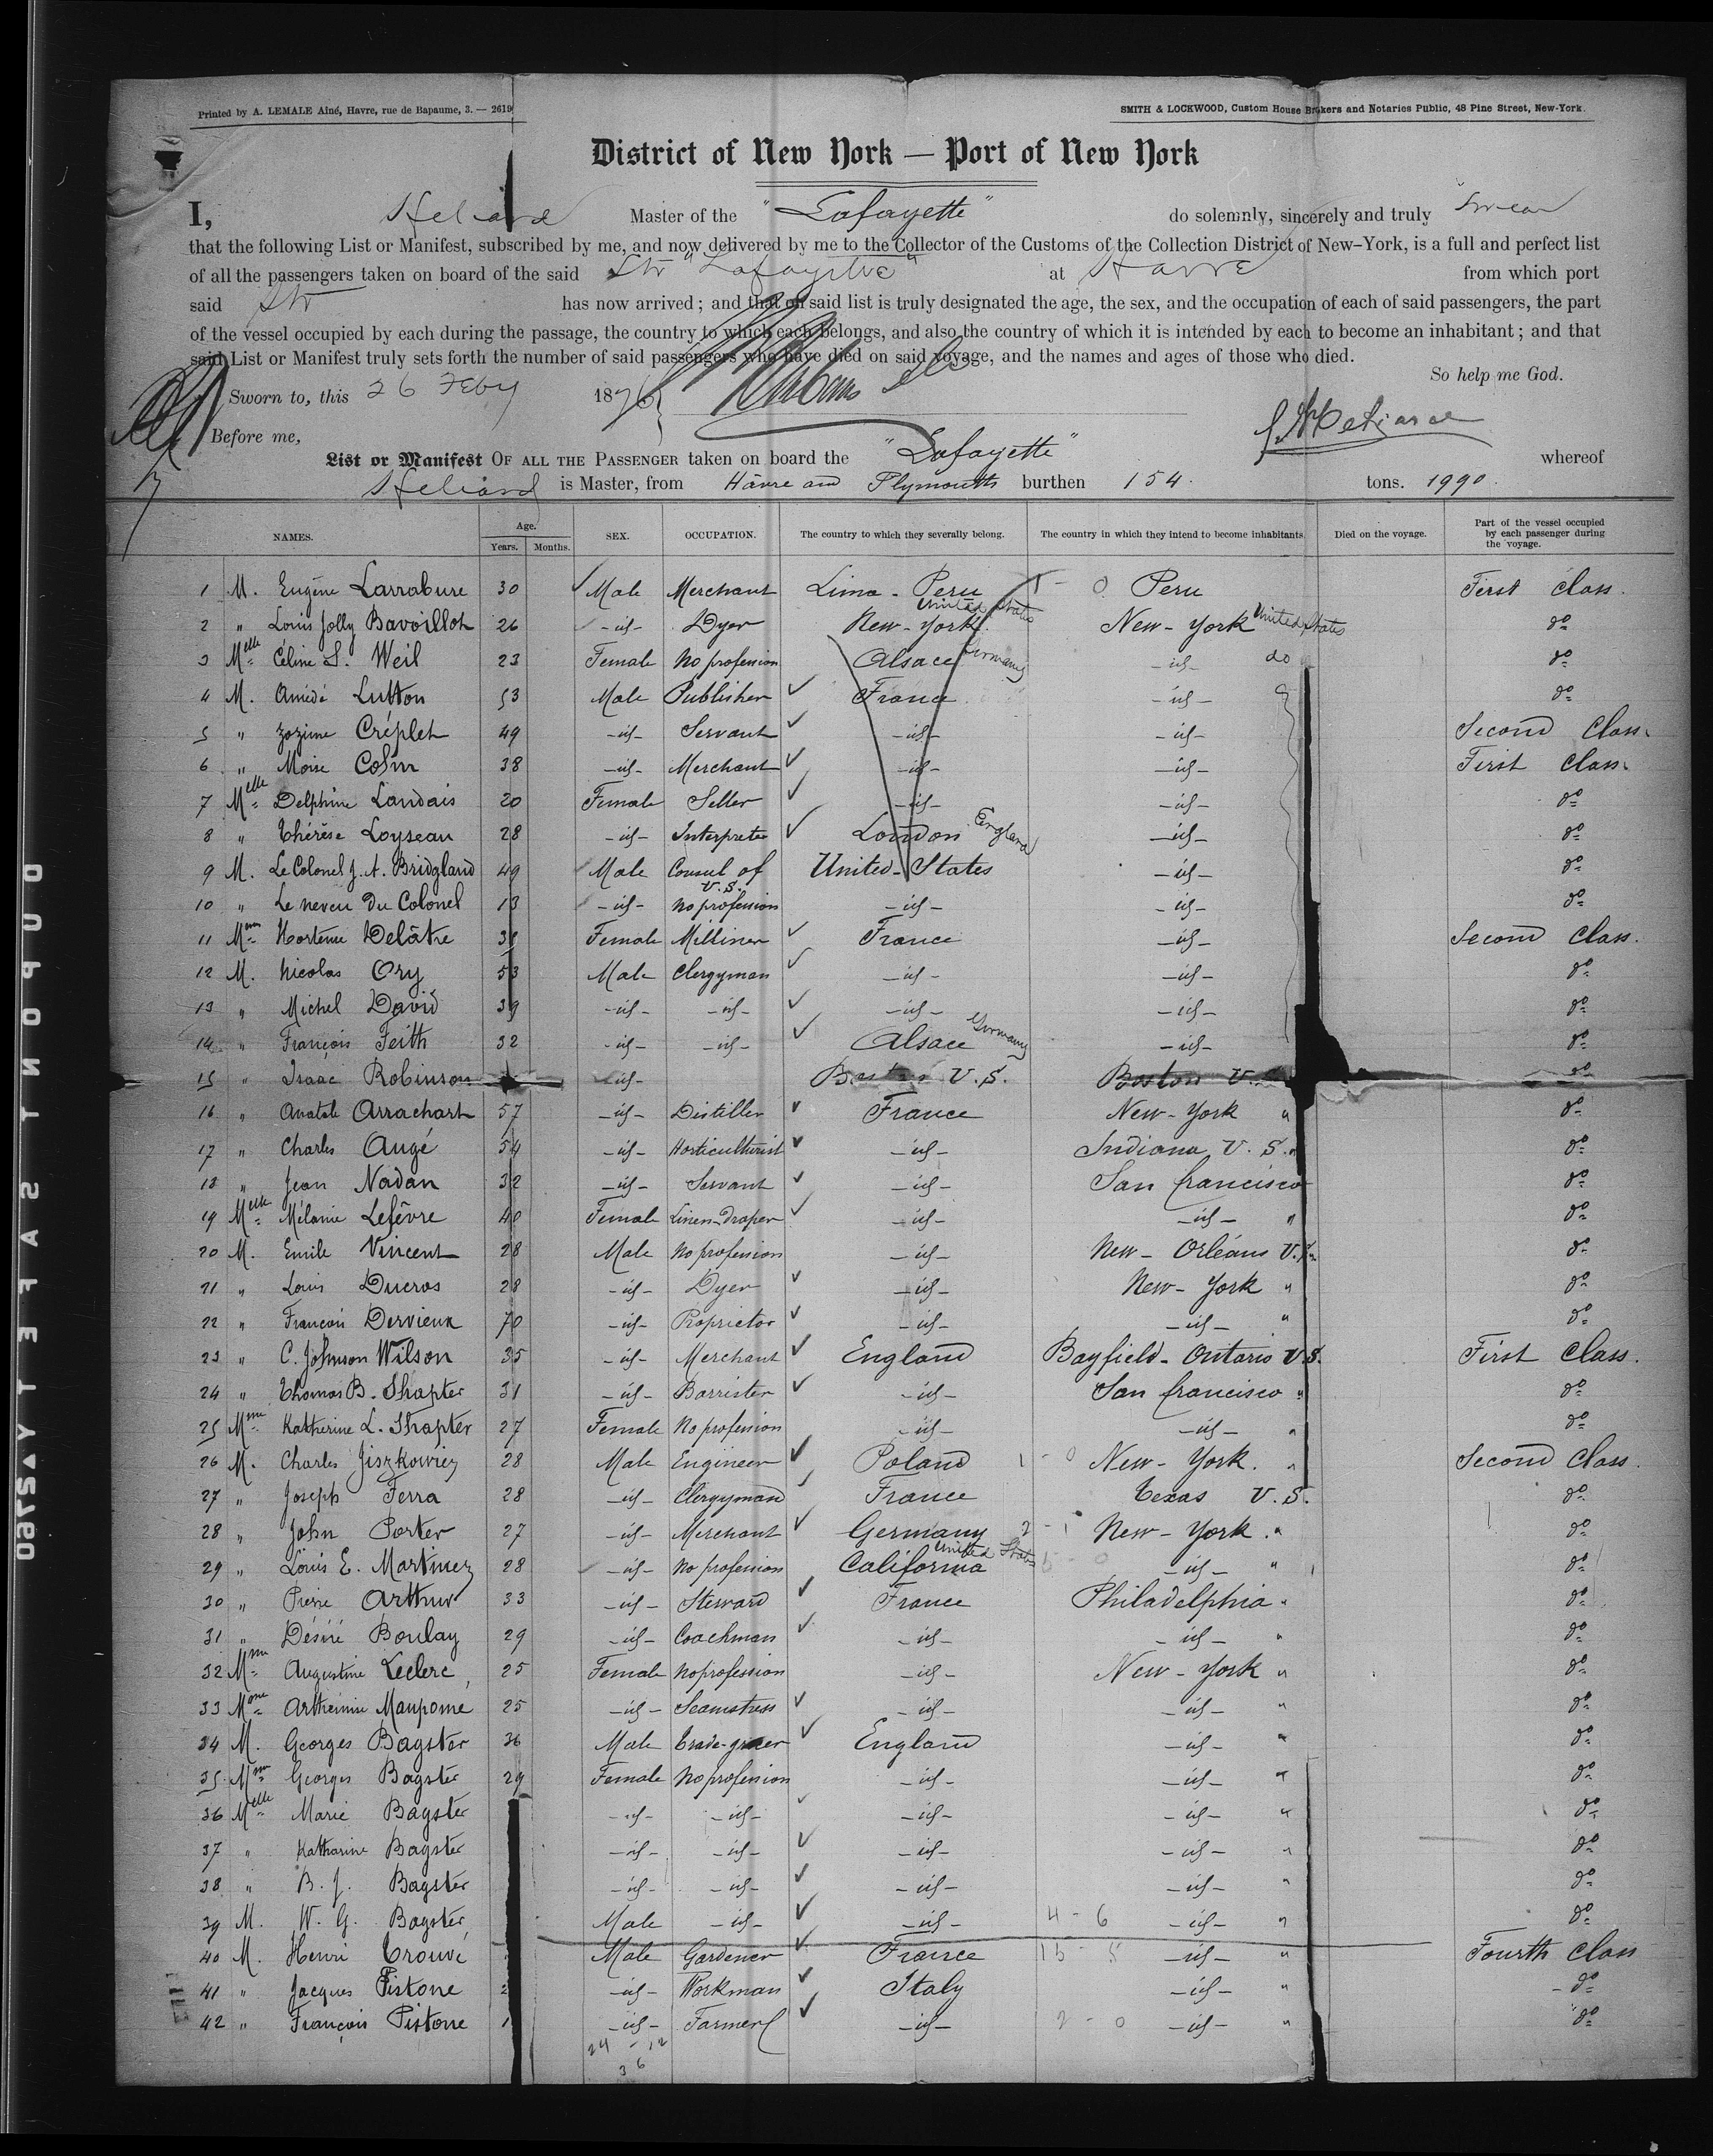 Printed by A. LEMALE Ainé, Havre, rue de Bapaume, 3. — 2619
SMITH & LOCKWOOD, Custom House Brokers and Notaries Public, 48 Pine Street, New-York.
District of New York — Port of New York
I, Heliard Master of the "Lafayette" do solemnly, sincerely and truly swear
that the following List or Manifest, subscribed by me, and now delivered by me to the Collector of the Customs of the Collection District of New-York, is a full and perfect list
of all the passengers taken on board of the said Str "Lafayette" at Havre from which port
said Str has now arrived; and that on said list is truly designated the age, the sex, and the occupation of each of said passengers, the part
of the vessel occupied by each during the passage, the country to which each belongs, and also the country of which it is intended by each to become an inhabitant; and that
said List or Manifest truly sets forth the number of said passengers who have died on said voyage, and the names and ages of those who died.
So help me God.
Sworn to, this 26 Feby 1876
Before me,
List or Manifest OF ALL THE PASSENGER taken on board the "Lafayette" whereof
Heliard is Master, from Hâvre and Plymouth burthen 154. tons. 1990.
NAMES. Age. Years. Months. SEX. OCCUPATION. The country to which they severally belong. The country in which they intend to become inhabitants. Died on the voyage. Part of the vessel occupied by each passenger during the voyage.
1 M. Eugène Larrabure 30 Male Merchant Lima - Peru 1 - 0 Peru First Class.
2 " Louis Jolly Bavoillot 26 -id- Dyer New-York United States New-York United States do
3 Melle Céline S. Weil 23 Female No profession Alsace Germany -id- do do
4 M. Amédé Lutton 53 Male Publisher France -id- do
5 " Zozime Créplet 49 -id- Servant -id- -id- Second Class.
6 " Moise Cohn 38 -id- Merchant -id- -id- First Class.
7 Melle Delphine Landais 20 Female Seller -id- -id- do
8 " Thérèse Loyseau 28 -id- Interpreter London England -id- do
9 M. Le Colonel J. A. Bridgland 49 Male Consul of U.S. United-States -id- do
10 " Le neveu du Colonel 13 -id- No profession -id- -id- do
11 Mme Hortense Delâtre 38 Female Milliner France -id- Second Class.
12 M. Nicolas Ory 53 Male Clergyman -id- -id- do
13 " Michel David 39 -id- -id- -id- -id- do
14 " François Feith 32 -id- -id- Alsace Germany -id- do
15 " Isaac Robinson -id- Boston U.S. Boston U.S. do
16 " Anatole Arrachart 57 -id- Distiller France New-York " do
17 " Charles Augé 54 -id- Horticulturist -id- Indiana U.S. do
18 " Jean Nadan 32 -id- Servant -id- San francisco do
19 Melle Mélanie Lefêvre 40 Female Linen-Draper -id- -id- " do
20 M. Emile Vincent 28 Male No profession -id- New-Orléans U.S. do
21 " Louis Ducros 28 -id- Dyer -id- New-York " do
22 " François Dervieux 70 -id- Proprietor -id- -id- " do
23 " C. Johnson Wilson 35 -id- Merchant England Bayfield-Ontario U.S. First Class.
24 " Thomas B. Shapter 31 -id- Barrister -id- San francisco " do
25 Mme Katherine L. Shapter 27 Female No profession -id- -id- " do
26 M. Charles Jiszkowiez 28 Male Engineer Poland 1 - 0 New-York. " Second Class.
27 " Joseph Ferra 28 -id- Clergyman France Texas U.S. do
28 " John Porter 27 -id- Merchant Germany 2 - 1 New-York. " do
29 " Louis E. Martinez 28 -id- No profession California United States -id- " do
30 " Pierre Arthur 33 -id- Steward France Philadelphia " do
31 " Désiré Boulay 29 -id- Coachman -id- -id- " do
32 Mme Augustine Leclerc 25 Female No profession -id- New-York " do
33 Mme Arthémise Maupome 25 -id- Seamstress -id- -id- " do
34 M. Georges Bagster 36 Male England -id- " do
35 Mme Georges Bagster 29 Female No profession -id- -id- " do
36 Melle Marie Bagster -id- -id- -id- -id- " do
37 " Katharine Bagster -id- -id- -id- -id- " do
38 " B. J. Bagster -id- -id- -id- -id- " do
39 M. W. G. Bagster Male -id- -id- 4 - 6 -id- " do
40 M. Henri Trouvé Male Gardener France 15 - 5 -id- " Fourth Class
41 " Jacques Pistone 2 -id- Workman Italy -id- " do
42 " François Pistone 1 -id- Farmer -id- 2 - 0 -id- " do
24 - 12
36